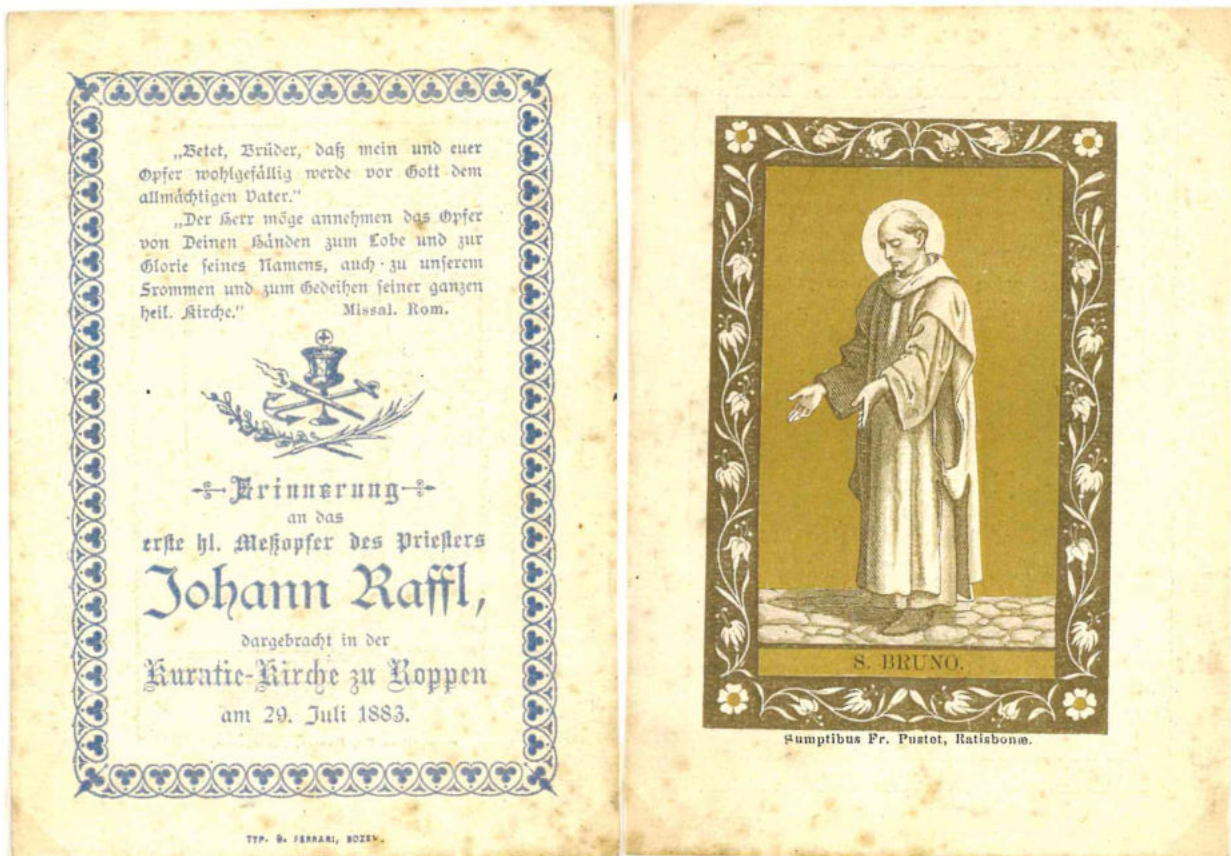 „Betet, Brüder, daß mein und euer
Opfer wohlgefällig werde vor Gott dem
allmächtigen Vater.“
„Der Herr möge annehmen das Opfer
von Deinen Händen zum Lobe und zur
Glorie seines Namens, auch zu unserem
Frommen und zum Gedeihen seiner ganzen
heil. Kirche.“ Missal. Rom.
Erinnerung
an das
erste hl. Meßopfer des Priesters
Johann Raffl,
dargebracht in der
Kuratie-Kirche zu Roppen
am 29. Juli 1883.
TYP. G. FERRARI, BOZEN.
S. BRUNO.
Sumptibus Fr. Pustet, Ratisbonæ.